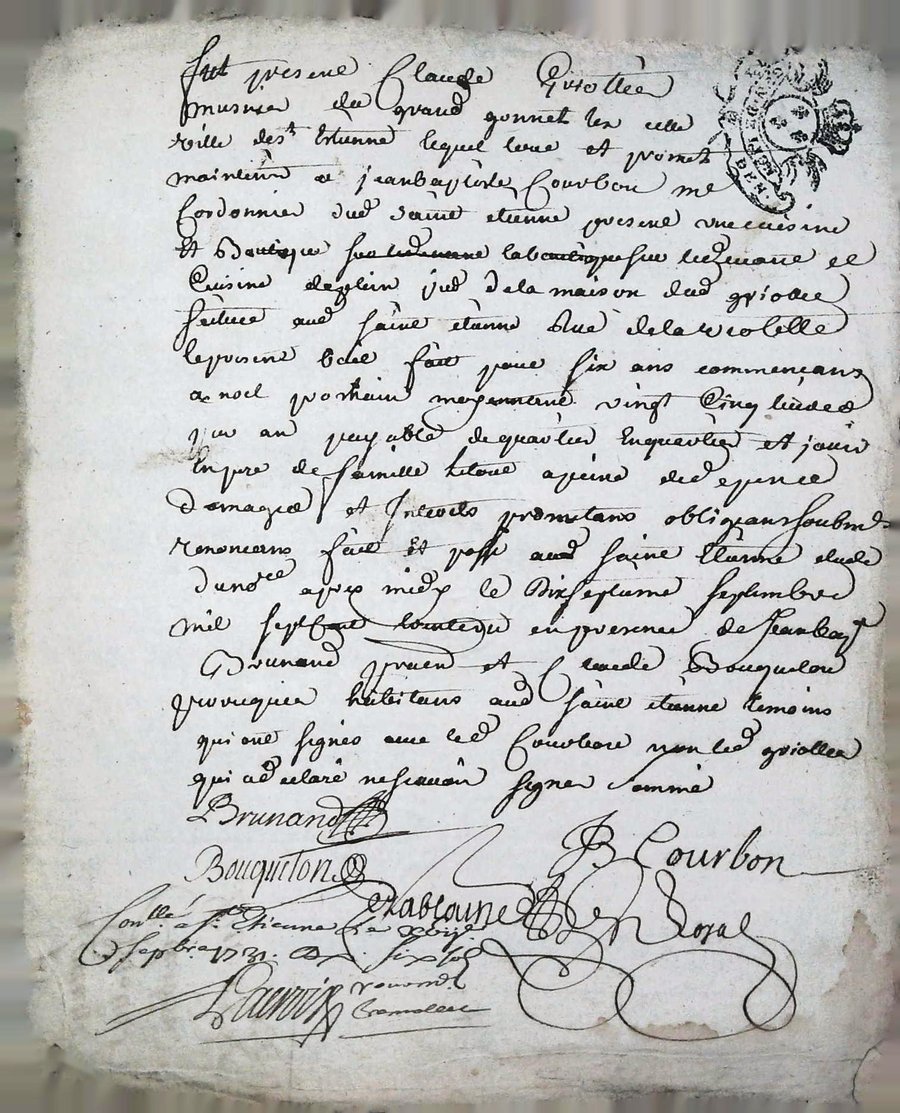 fut present Claude Griottier
musnier du grand gonnet lez cette
ville de st Etienne lequel loue et promet
maintenir a jeanbaptiste Courbon me
Cordonnier dud saint etienne present une cuisine
et Boutique la boutique sur lad rue et
Cuisine deplein pied dela maison dud griottier
scituee aud saint etienne Rue dela violette
le present bail fait pour six ans commencans
a noel prochain moyennant vingt Cinq livres
par an payable de quartier Enquartier et jouir
En pere de famille letout apeine de depens
domages et Interets promettans obligeans soubm
renoncans fait et passé aud saint Etienne etude
dunore apres midy le Dixseptieme septembre
mil sept cent trente en presence de Jean bapt
Brunand et Claude Bouqueton
habitans aud saint etienne temoins
qui ont signés avec led Courbon non led griottier
qui a declaré nescavoir signer sommé
Brunand
JB Courbon
Bouqueton
Chabanne
Nre Royal
Conllé a St Etienne le
Sepbre 1731. Six sols